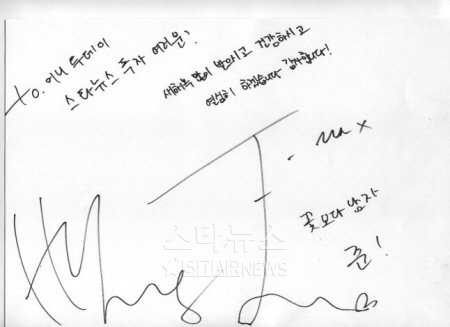 To. 머니투데이
스타뉴스 독자 여러분!
새해복 많이 받으시고 건강하시고
열심히 하겠습니다 감사합니다!
T-max
꽃보다 남자
준!
스타뉴스
STARNEWS